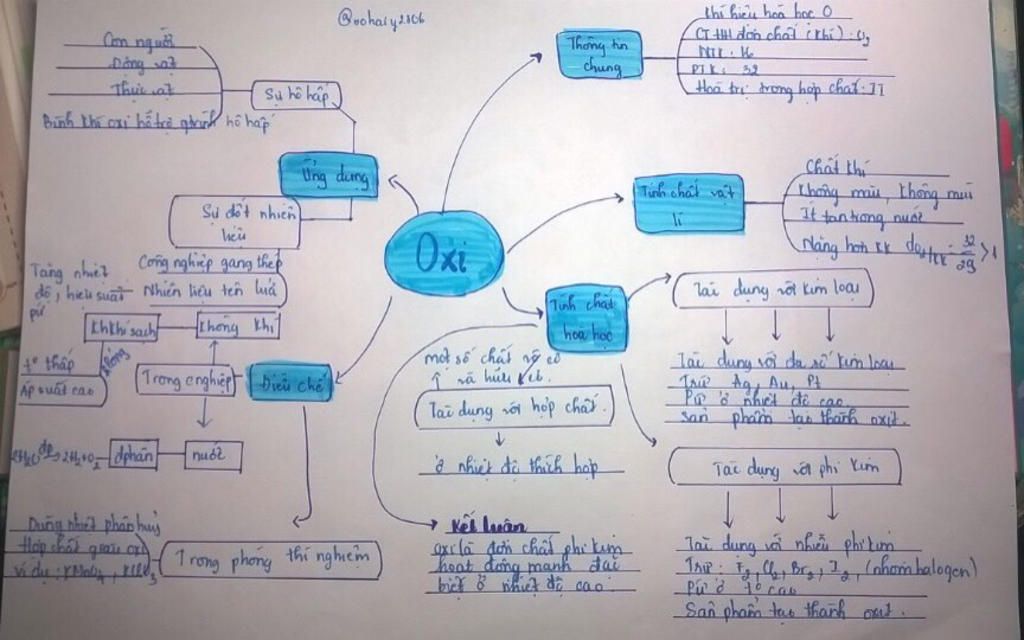 @oohaiy2806
Oxi
Thông tin
chung
Kí hiệu hoá học O
CTHH đơn chất (khí) : O₂
NTK : 16
PTK : 32
Hoá trị trong hợp chất : II
Tính chất vật
lí
Chất khí
Không màu, không mùi
Ít tan trong nước
Nặng hơn KK dO₂/KK = 32/29 > 1
Tính chất
hoá học
Tác dụng với kim loại
Tác dụng với đa số kim loại
Trừ Ag, Au, Pt
Pứ ở nhiệt độ cao
Sản phẩm tạo thành oxit.
Tác dụng với phi kim
Tác dụng với nhiều phi kim
Trừ : F₂, Cl₂, Br₂, I₂, (nhóm halogen)
Pứ ở t° cao
Sản phẩm tạo thành oxit.
một số chất vô cơ
và hữu cơ.
Tác dụng với hợp chất.
ở nhiệt độ thích hợp
Kết luân
oxi là đơn chất phi kim
hoạt động mạnh đặc
biệt ở nhiệt độ cao.
Ứng dụng
Sự hô hấp
Con người
Động vật
Thực vật
Bình khí oxi hỗ trợ quá trình hô hấp
Sự đốt nhiên
liệu
Công nghiệp gang thép
Nhiên liệu tên lửa
Tăng nhiệt
độ, hiệu suất
pứ
Điều chế
Trong cnghiệp
Không khí
KhKhí sạch
lỏng
t° thấp
Áp suất cao
nước
đphân
2H₂O đp→ 2H₂+O₂
Trong phòng thí nghiệm
Dùng nhiệt phân huỷ
Hợp chất giàu oxi
ví dụ : KMnO₄, KClO₃